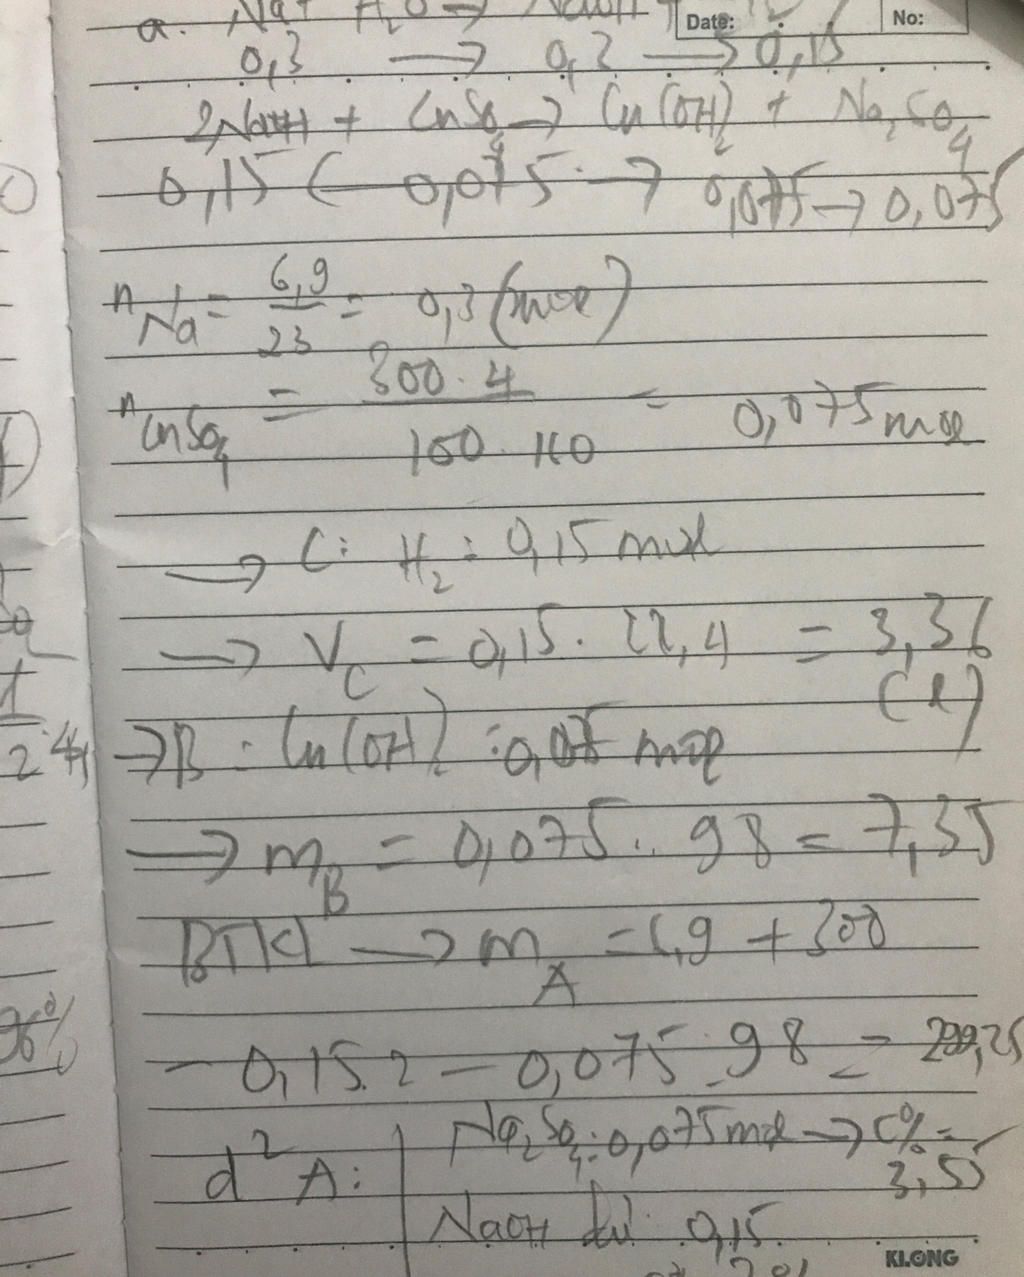 a. Na + H₂O → NaOH +
Date: No:
0,3 → 0,3 → 0,15
2NaOH + CuSO₄ → Cu(OH)₂ + Na₂SO₄
0,15 ← 0,075 → 0,075 → 0,075
nNa = 6,9/23 = 0,3 (mol)
nCuSO₄ = 300.4/100.160 = 0,075 mol
→ C: H₂: 0,15 mol
→ V_C = 0,15. 22,4 = 3,36
(l)
→ B: Cu(OH)₂: 0,075 mol
→ m_B = 0,075. 98 = 7,35
BTKL → m_A = 6,9 + 300
- 0,15.2 - 0,075.98 = 299,25
d² A: Na₂SO₄: 0,075 mol → C% =
3,55
NaOH dư: 0,15
KLONG